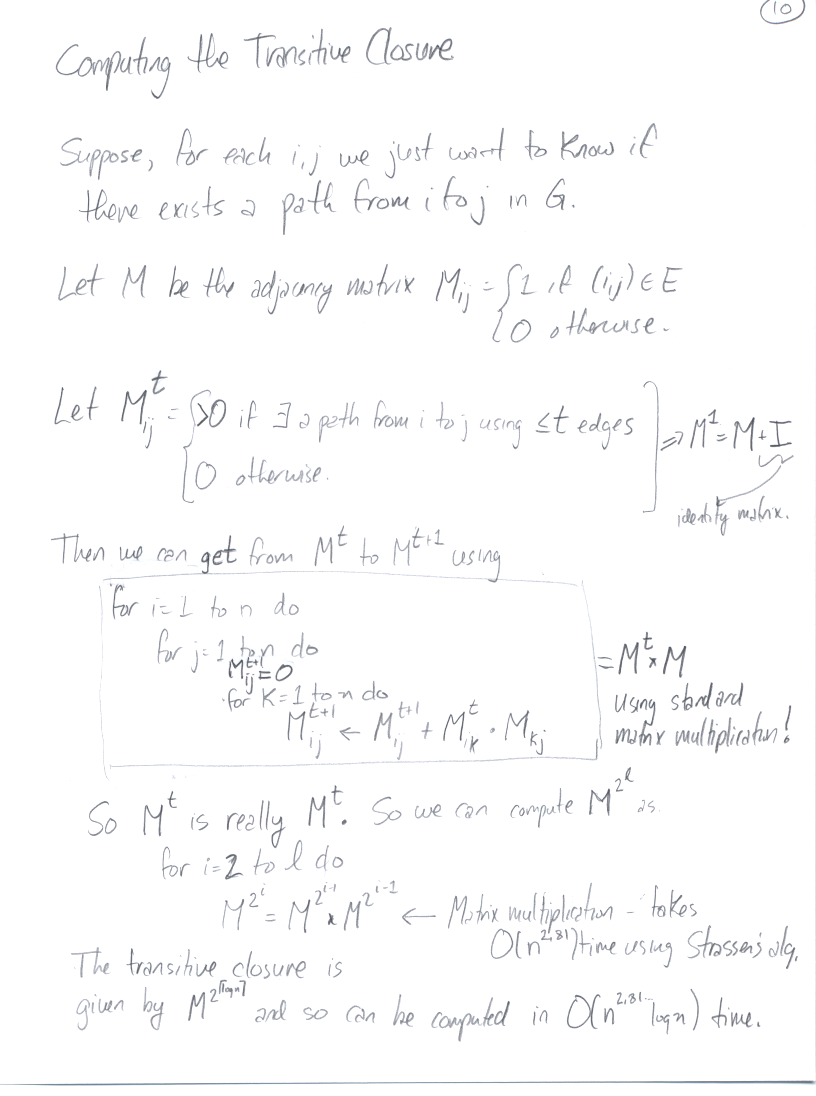 10
Computing the Transitive Closure
Suppose, for each i,j we just want to know if
there exists a path from i to j in G.
Let M be the adjacency matrix M_ij = { 1 if (i,j) ∈ E
{ 0 otherwise.
Let M^t_ij = { >0 if ∃ a path from i to j using ≤t edges ] ⇒ M^1 = M+I
{ 0 otherwise.
identity matrix.
Then we can get from M^t to M^t+1 using
for i=1 to n do
for j=1 to n do
M^t+1_ij = 0
for k=1 to n do
M^t+1_ij ← M^t+1_ij + M^t_ik · M_kj
= M^t × M
using standard
matrix multiplication!
So M^t is really M^t. So we can compute M^2^l as
for i=2 to l do
M^2^i = M^2^i-1 × M^2^i-1 ← Matrix multiplication - takes
O(n^2.81) time using Strassen's alg.
The transitive closure is
given by M^2^⌈log n⌉ and so can be computed in O(n^2.81... log n) time.